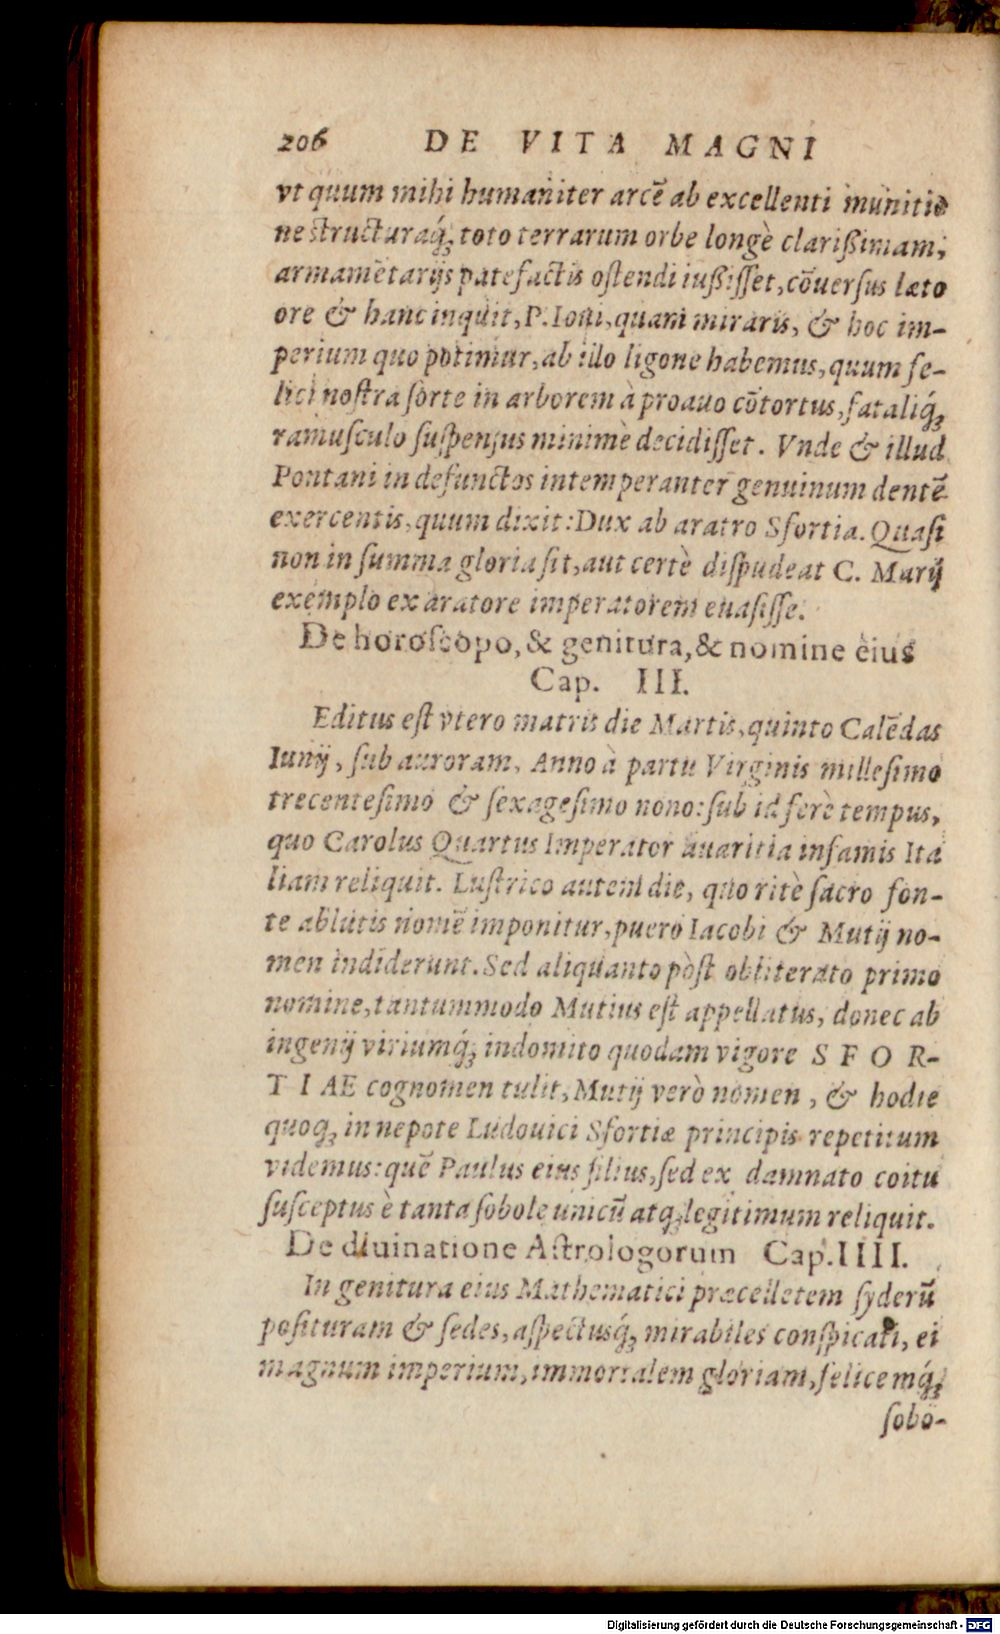 206 DE VITA MAGNI
vt quum mihi humaniter arcē ab excellenti munitio
ne structuraq́ꝫ toto terrarum orbe longè clarißimam,
armamētarijs patefactis ostendi iußisset, cōuersus læto
ore & hanc inquit, P. Ioui, quam miraris, & hoc im-
perium quo potimur, ab illo ligone habemus, quum fe-
lici nostra sorte in arborem à proauo cōtortus, fataliq́ꝫ
ramusculo suspensus minimè decidisset. Vnde & illud
Pontani in defunctos intemperanter genuinum dentē
exercentis, quum dixit: Dux ab aratro Sfortia. Quasi
non in summa gloria sit, aut certè dispudeat C. Marij
exemplo ex aratore imperatorem euasisse.
De horoscopo, & genitura, & nomine eius
Cap. III.
Editus est vtero matris die Martis, quinto Calēdas
Iunij, sub auroram, Anno à partu Virginis millesimo
trecentesimo & sexagesimo nono: sub id ferè tempus,
quo Carolus Quartus Imperator auaritia infamis Ita
liam reliquit. Lustrico autem die, quo ritè sacro fon-
te ablutis nomē imponitur, puero Iacobi & Mutij no-
men indiderunt. Sed aliquanto pòst obliterato primo
nomine, tantummodo Mutius est appellatus, donec ab
ingenij viriumq́ꝫ indomito quodam vigore S F O R-
T I AE cognomen tulit, Mutij verò nomen, & hodie
quoqꝫ in nepote Ludouici Sfortiæ principis repetitum
videmus: quē Paulus eius filius, sed ex damnato coitu
susceptus è tanta sobole unicū atqꝫ legitimum reliquit.
De diuinatione Astrologorum Cap. IIII.
In genitura eius Mathematici præcelletem syderū
posituram & sedes, aspectusq́ꝫ mirabiles conspicati, ei
magnum imperium, immortalem gloriam, felicemq́ꝫ
sobo-
Digitalisierung gefördert durch die Deutsche Forschungsgemeinschaft - DFG